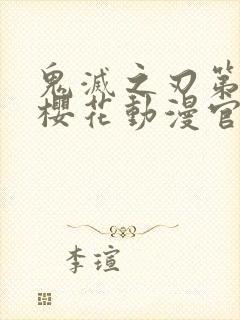 鬼滅之刃第
櫻花動漫官
李瑄